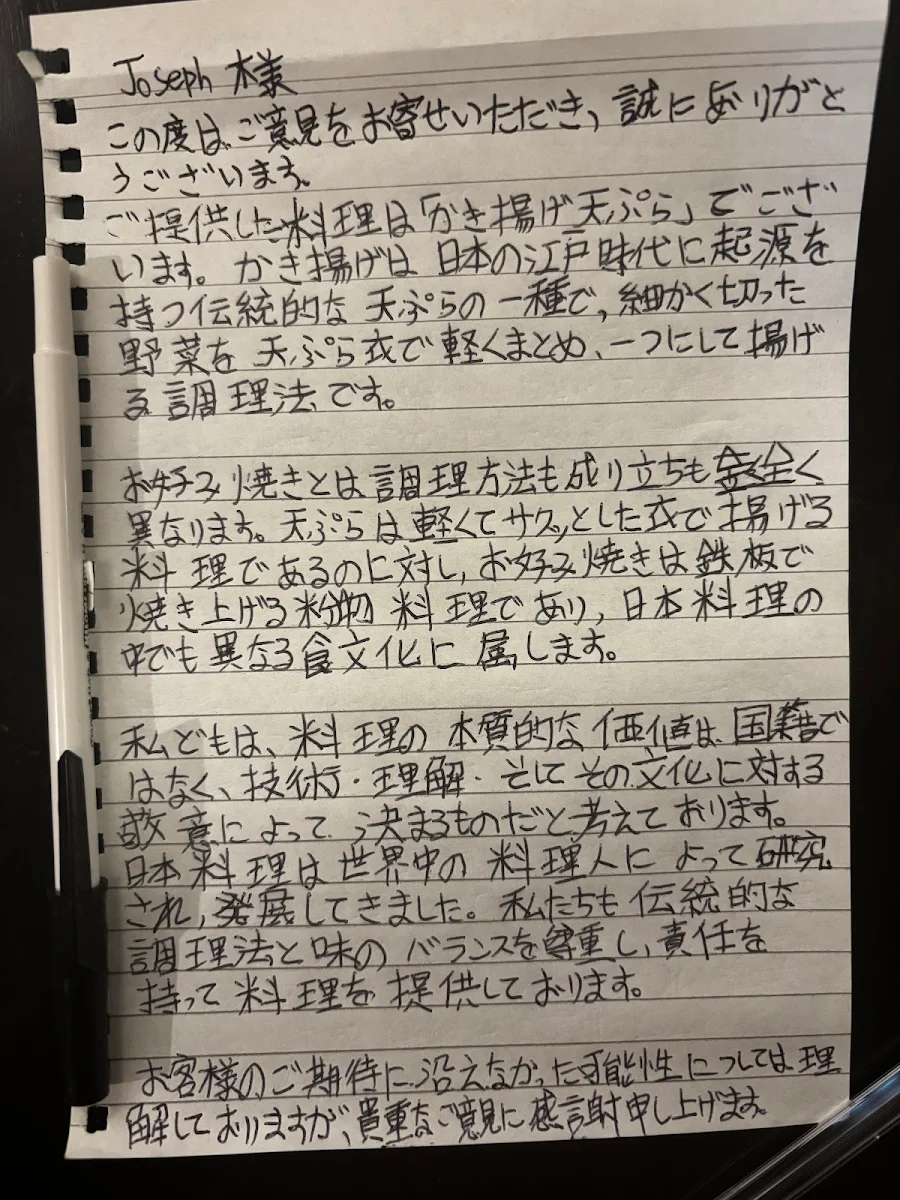 Joseph 様
この度は、ご意見をお寄せいただき、誠にありがと
うございます。
ご提供した料理は「かき揚げ天ぷら」でござ
います。かき揚げは 日本の江戸時代に起源を
持つ伝統的な 天ぷらの一種で、細かく切った
野菜を 天ぷら衣で軽くまとめ、一つにして揚げ
る調理法です。
お好み焼きとは調理方法も成り立ちも全く
異なります。天ぷらは軽くてサクッとした衣で揚げる
料理であるのに対し、お好み焼きは鉄板で
焼き上げる粉物料理であり、日本料理の
中でも異なる食文化に属します。
私どもは、料理の本質的な価値は、国籍で
はなく、技術・理解・そしてその文化に対する
敬意によって決まるものだと考えております。
日本料理は世界中の料理人によって研究
され、発展してきました。私たちも伝統的な
調理法と味のバランスを尊重し、責任を
持って料理を提供しております。
お客様のご期待に沿えなかった可能性につしては理
解しておりますが、貴重なご意見に感謝申し上げます。